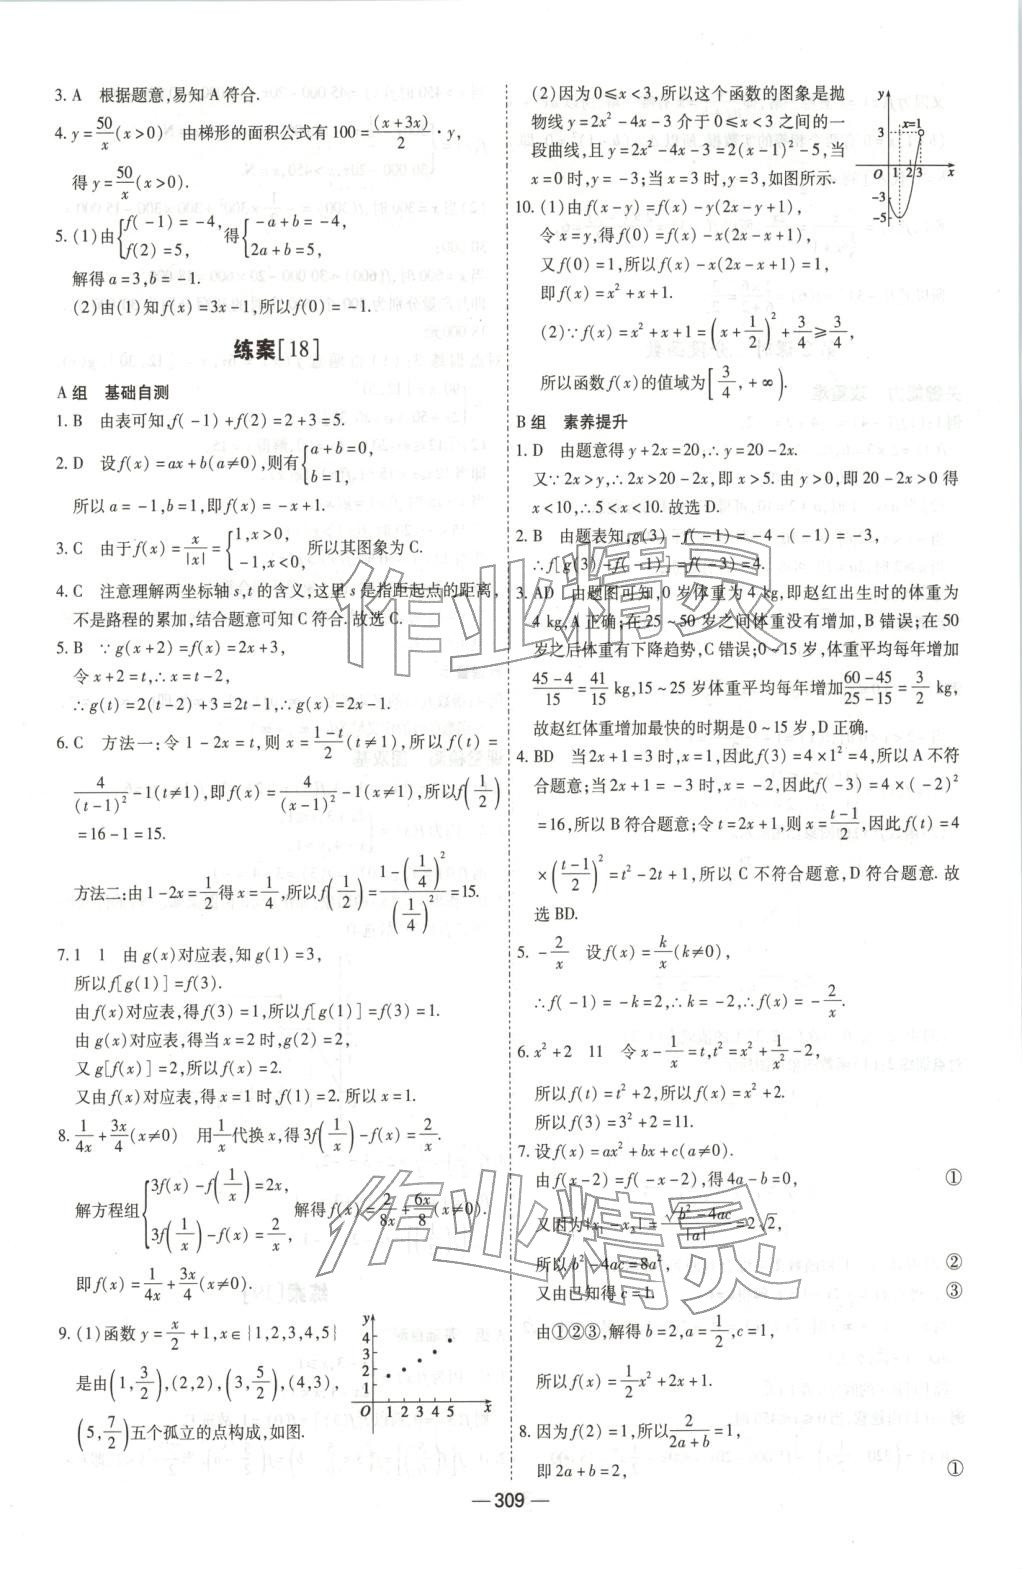 3. A　根据题意,易知 A 符合.
4. y=50/x(x>0)　由梯形的面积公式有 100=(x+3x)/2·y,
得 y=50/x(x>0).
5. (1)由{f(-1)=-4, f(2)=5, 得{-a+b=-4, 2a+b=5,
解得 a=3,b=-1.
(2)由(1)知 f(x)=3x-1,所以 f(0)=-1.
练案[18]
A 组　基础自测
1. B　由表可知,f(-1)+f(2)=2+3=5.
2. D　设 f(x)=ax+b(a≠0),则有{a+b=0, b=1,
所以 a=-1,b=1,即 f(x)=-x+1.
3. C　由于 f(x)=x/|x|={1,x>0, -1,x<0,　所以其图象为 C.
4. C　注意理解两坐标轴 s,t 的含义,这里 s 是指距起点的距离,
不是路程的累加,结合题意可知 C 符合.故选 C.
5. B　∵g(x+2)=f(x)=2x+3,
令 x+2=t,∴x=t-2,
∴g(t)=2(t-2)+3=2t-1,∴g(x)=2x-1.
6. C　方法一:令 1-2x=t,则 x=(1-t)/2(t≠1),所以 f(t)=
4/(t-1)²-1(t≠1),即 f(x)=4/(x-1)²-1(x≠1),所以 f(1/2)
=16-1=15.
方法二:由 1-2x=1/2 得 x=1/4,所以 f(1/2)=(1-(1/4)²)/(1/4)²=15.
7. 1　1　由 g(x)对应表,知 g(1)=3,
所以 f[g(1)]=f(3).
由 f(x)对应表,得 f(3)=1,所以 f[g(1)]=f(3)=1.
由 g(x)对应表,得当 x=2 时,g(2)=2,
又 g[f(x)]=2,所以 f(x)=2.
又由 f(x)对应表,得 x=1 时,f(1)=2.所以 x=1.
8. 1/(4x)+3x/4(x≠0)　用 1/x 代换 x,得 3f(1/x)-f(x)=2/x.
解方程组{3f(x)-f(1/x)=2x, 3f(1/x)-f(x)=2/x,　解得 f(x)=2/(8x)+6x/8(x≠0).
即 f(x)=1/(4x)+3x/4(x≠0).
9. (1)函数 y=x/2+1,x∈{1,2,3,4,5}
是由(1,3/2),(2,2),(3,5/2),(4,3),
(5,7/2)五个孤立的点构成,如图.
y
4
3
2
1
O 1 2 3 4 5 x
(2)因为 0≤x<3,所以这个函数的图象是抛
物线 y=2x²-4x-3 介于 0≤x<3 之间的一
段曲线,且 y=2x²-4x-3=2(x-1)²-5,当
x=0 时,y=-3;当 x=3 时,y=3,如图所示.
y
x=1
3
O 1 2 3 x
-3
-5
10. (1)由 f(x-y)=f(x)-y(2x-y+1),
令 x=y,得 f(0)=f(x)-x(2x-x+1),
又 f(0)=1,所以 f(x)-x(2x-x+1)=1,
即 f(x)=x²+x+1.
(2)∵f(x)=x²+x+1=(x+1/2)²+3/4≥3/4,
所以函数 f(x)的值域为[3/4,+∞).
B 组　素养提升
1. D　由题意得 y+2x=20,∴y=20-2x.
又∵2x>y,∴2x>20-2x,即 x>5.由 y>0,即 20-2x>0 得
x<10,∴5<x<10.故选 D.
2. B　由题表知,g(3)-f(-1)=-4-(-1)=-3,
∴f[g(3)-f(-1)]=f(-3)=4.
3. AD　由题图可知,0 岁体重为 4 kg,即赵红出生时的体重为
4 kg,A 正确;在 25~50 岁之间体重没有增加,B 错误;在 50
岁之后体重有下降趋势,C 错误;0~15 岁,体重平均每年增加
(45-4)/15=41/15 kg,15~25 岁体重平均每年增加(60-45)/(25-15)=3/2 kg,
故赵红体重增加最快的时期是 0~15 岁,D 正确.
4. BD　当 2x+1=3 时,x=1,因此 f(3)=4×1²=4,所以 A 不符
合题意;当 2x+1=-3 时,x=-2,因此 f(-3)=4×(-2)²
=16,所以 B 符合题意;令 t=2x+1,则 x=(t-1)/2,因此 f(t)=4
×((t-1)/2)²=t²-2t+1,所以 C 不符合题意,D 符合题意.故
选 BD.
5. -2/x　设 f(x)=k/x(k≠0),
∴f(-1)=-k=2,∴k=-2,∴f(x)=-2/x.
6. x²+2　11　令 x-1/x=t,t²=x²+1/x²-2,
所以 f(t)=t²+2,所以 f(x)=x²+2.
所以 f(3)=3²+2=11.
7. 设 f(x)=ax²+bx+c(a≠0).
由 f(x-2)=f(-x-2),得 4a-b=0,　①
又因为|x₁-x₂|=√(b²-4ac)/|a|=2√2,
所以 b²-4ac=8a²,　②
又由已知得 c=1.　③
由①②③,解得 b=2,a=1/2,c=1,
所以 f(x)=1/2x²+2x+1.
8. 因为 f(2)=1,所以 2/(2a+b)=1,
即 2a+b=2,　①
— 309 —
作业精灵
作业精灵